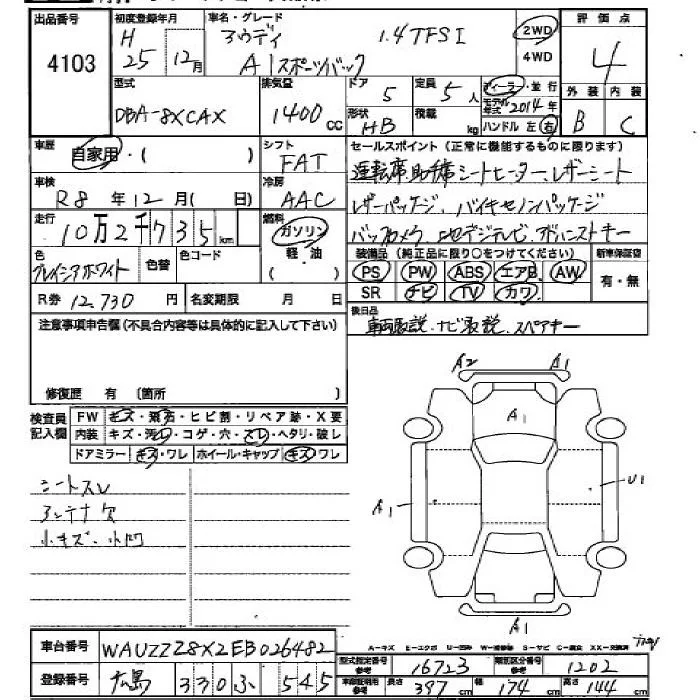 出品番号 4103
初度登録年月 H 25年 12月
車名・グレード アウディ 1.4TFSI
A1スポーツバック
2WD
4WD
評価点 4
外装 B 内装 C
型式 DBA-8XCAX
排気量 1400cc
ドア 5
定員 5人
形状 HB
積載 kg
ディーラー・並行
モデル年式 2014年
ハンドル 左 右
車歴 自家用・( )
シフト FAT
車検 R8年 12月( 日)
冷房 AAC
走行 10万2千735km
燃料 ガソリン
軽・油
( )
色 グレイシアホワイト 色替 色コード
R券 12,730円 名変期限 月 日
セールスポイント(正常に機能するものに限ります)
運転席助手席シートヒーター、レザーシート
レザーパッケージ、バイキセノンパッケージ
バックカメラ、地デジテレビ、アドバンストキー
装備品(純正品に限り○をつけてください) 新車保証書
PS PW ABS エアB AW 有・無
SR ナビ TV カワ
後日品
車両取説、ナビ取説、スペアキー
注意事項申告欄(不具合内容等は具体的に記入して下さい)
修復歴 有 〔箇所 〕
検査員記入欄
FW キズ・飛石・ヒビ割・リペア跡・X要
内装 キズ・汚れ・コゲ・穴・スレ・ヘタリ・破レ
ドアミラー キズ・ワレ ホイール・キャップ キズ・ワレ
シートスレ
アンテナ欠
小キズ・小凹
A2 A1
A1
A1 U1
A1
A=キズ E=エクボ U=凹み W=補修跡 S=サビ C=腐食 XX=交換済
車台番号 WAUZZZ8X2EB026482
登録番号 広島 330 ふ 545
型式指定番号 参考 16723 類別区分番号 参考 1202
車庫証明用 参考 長さ 397cm 幅 174cm 高さ 144cm